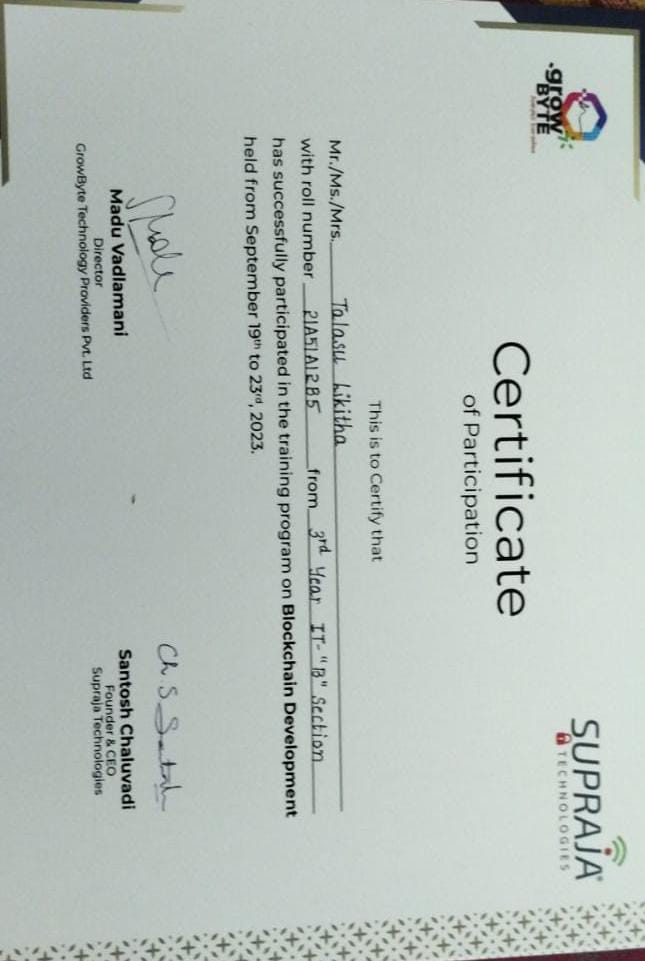 .grow
BYTE
SUPRAJA
TECHNOLOGIES
Certificate
of Participation
This is to Certify that
Mr./Ms./Mrs. Talasu Likitha
with roll number 21A51A12B5 from 3rd Year IT-"B" Section
has successfully participated in the training program on Blockchain Development
held from September 19th to 23rd, 2023.
Ch. S
Madu Vadlamani
Director
GrowByte Technology Providers Pvt. Ltd
Santosh Chaluvadi
Founder & CEO
Supraja Technologies